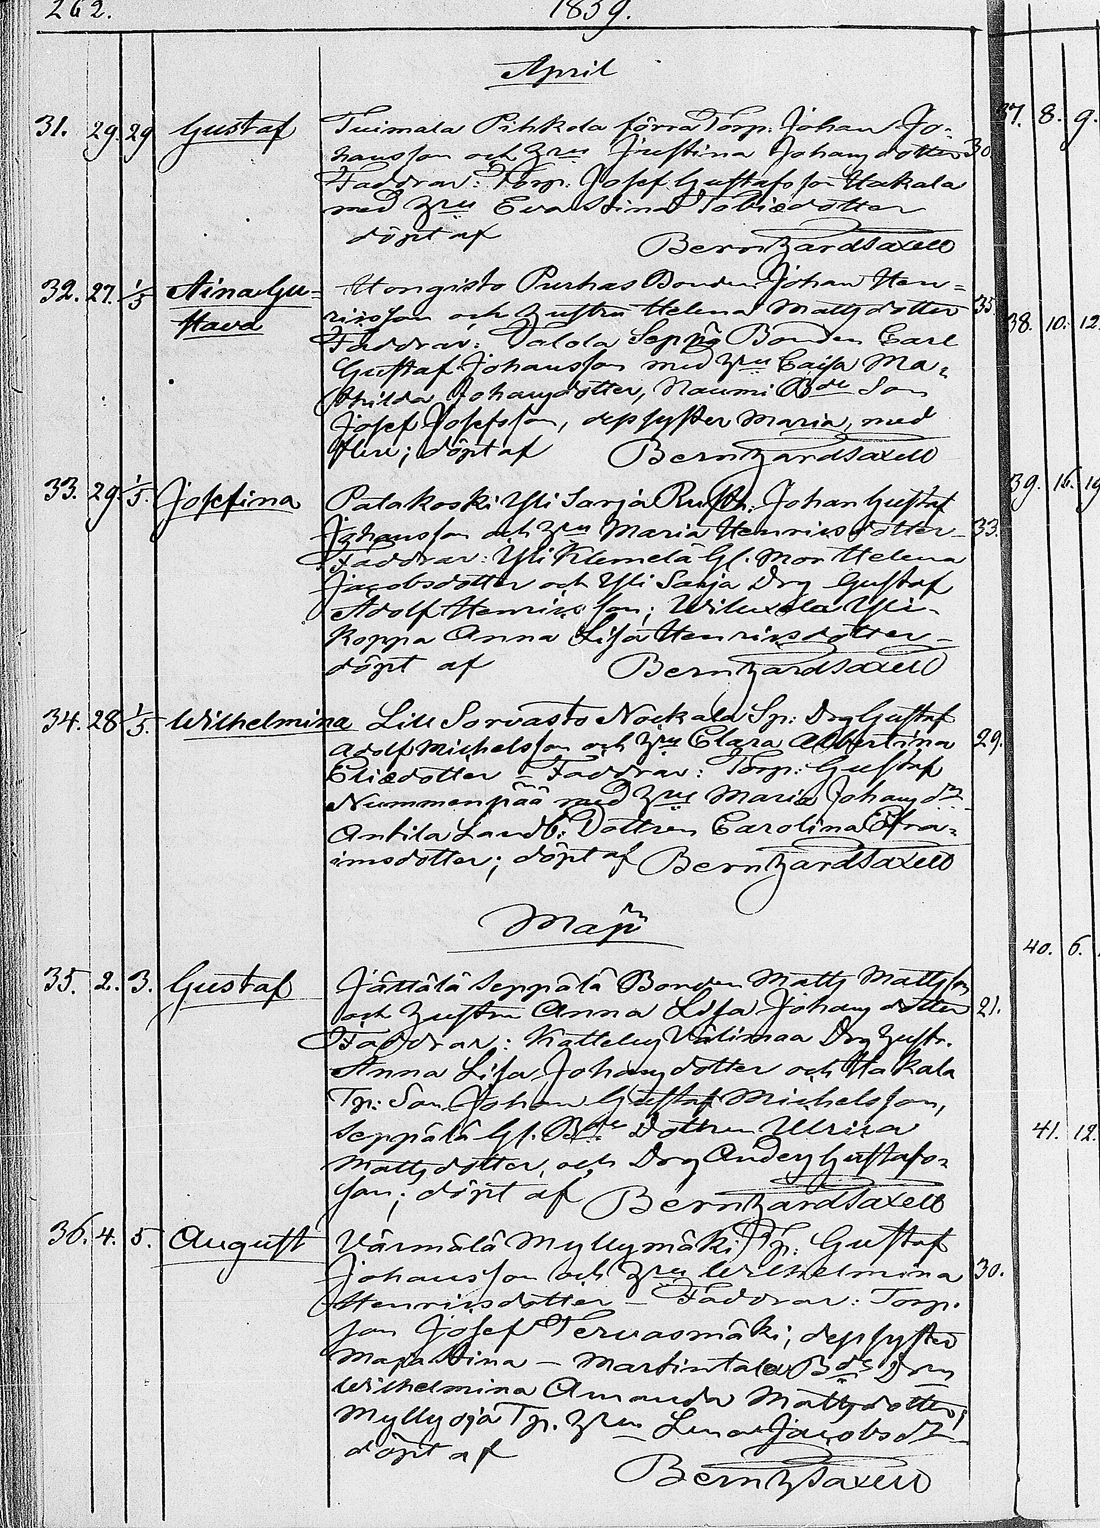 262. 1859.
April
31. 29. 29 Gustaf Tuimala Pihkola förra Torp. Johan Jo-
hansson och Hru Justina Johansdotter 30.
Faddrar: Torp. Josef Gustafsson Hakala
med Hru Eva Stina Tobiædotter
döpt af Berntzard Saxell
32. 27. 1/5 Aina Gu- Hongisto Purhas Bonden Johan Hen-
stava ricsson och hustru Helena Mattsdotter 35
Faddrar: Valola Seppä Bonden Carl
Gustaf Johansson med Hru Caisa Ma-
thilda Johansdotter, Naumi Bde Son
Josef Josefsson, dess syster Maria, med
flere; döpt af Berntzard Saxell
33. 29. 1/5. Josefina Palakoski Yli Sarja Rusth. Johan Gustaf
Johansson och Hru Maria Henricsdotter 33.
Faddrar: Yli Klemelä Gl. Mor Helena
Jacobsdotter och Yli Sarja Drg Gustaf
Adolf Henricsson; Yli-
Koppa Anna Lisa Henricsdotter
döpt af Berntzard Saxell
34. 28 1/5. Wilhelmina Lill Sorvasto Nockala Sp: Drg Gustaf
Adolf Michelsson och Hru Clara Albertina 29.
Eliædotter – Faddrar: Torp: Gustaf
Nummenpää med Hru Maria Johansdr
Antila Landb: Dottren Carolina Efra-
imsdotter; döpt af Berntzard Saxell
Maji
35. 2. 3. Gustaf Jättälä Seppälä Bonden Matts Mattsson
och hustru Anna Lisa Johansdotter 21.
Faddrar: Katteley Välimaa Drg hustr.
Anna Lisa Johansdotter och Hakala
Tp: Son Johan Gustaf Michelsson,
Seppälä Gl. Bde Dottren Ulrica
Mattsdotter, och Drg Anders Gustafs-
son; döpt af Berntzard Saxell
36. 4. 5. August Värmälä Myllymäki Tp: Gustaf
Johansson och Hru Wilhelmina 30.
Henricsdotter – Faddrar: Torp.
son Josef Tervasmäki, dess syster
Maja Stina – Martintalo Bde Drn
Wilhelmina Amanda Mattsdotter,
Myllyoja Tp. Hru Lena Jacobsdr
döpt af
Berntz Saxell
37. 8. 9.
38. 10. 12.
39. 16. 19
40. 6.
41. 12.